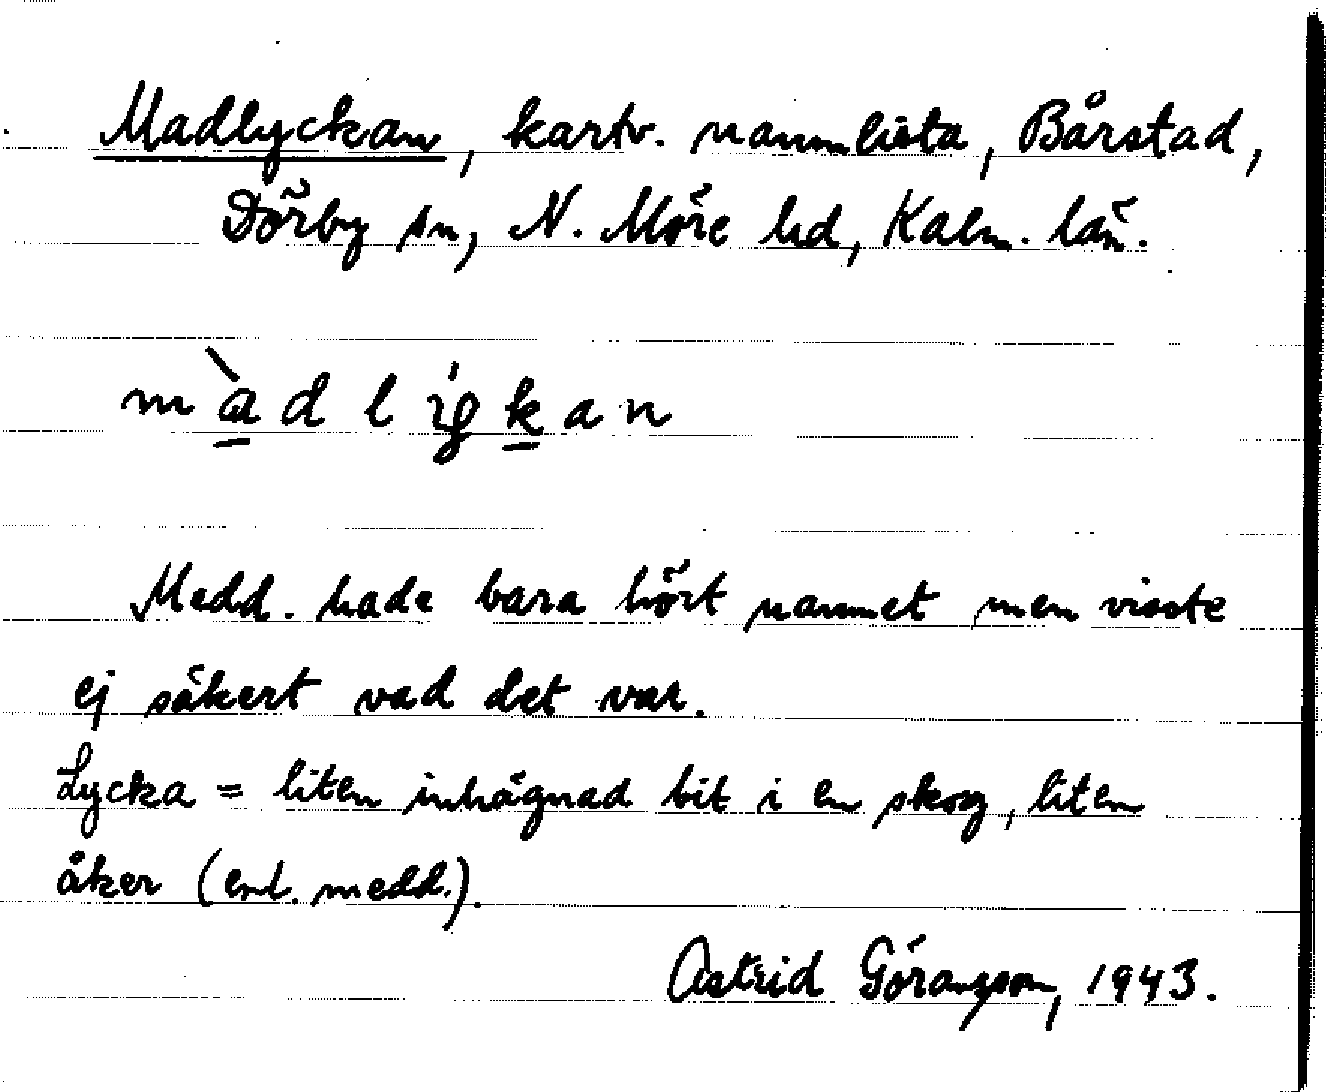 Madlyckan, kartv. namnlista, Bårstad,
Dörby sn, N. Möre hd, Kalm. län.
màdligkan
Medd. hade bara hört namnet men visste
ej säkert vad det var.
Lycka = liten inhägnad bit i en skog, liten
åker (enl. medd.).
Astrid Göransson, 1943.